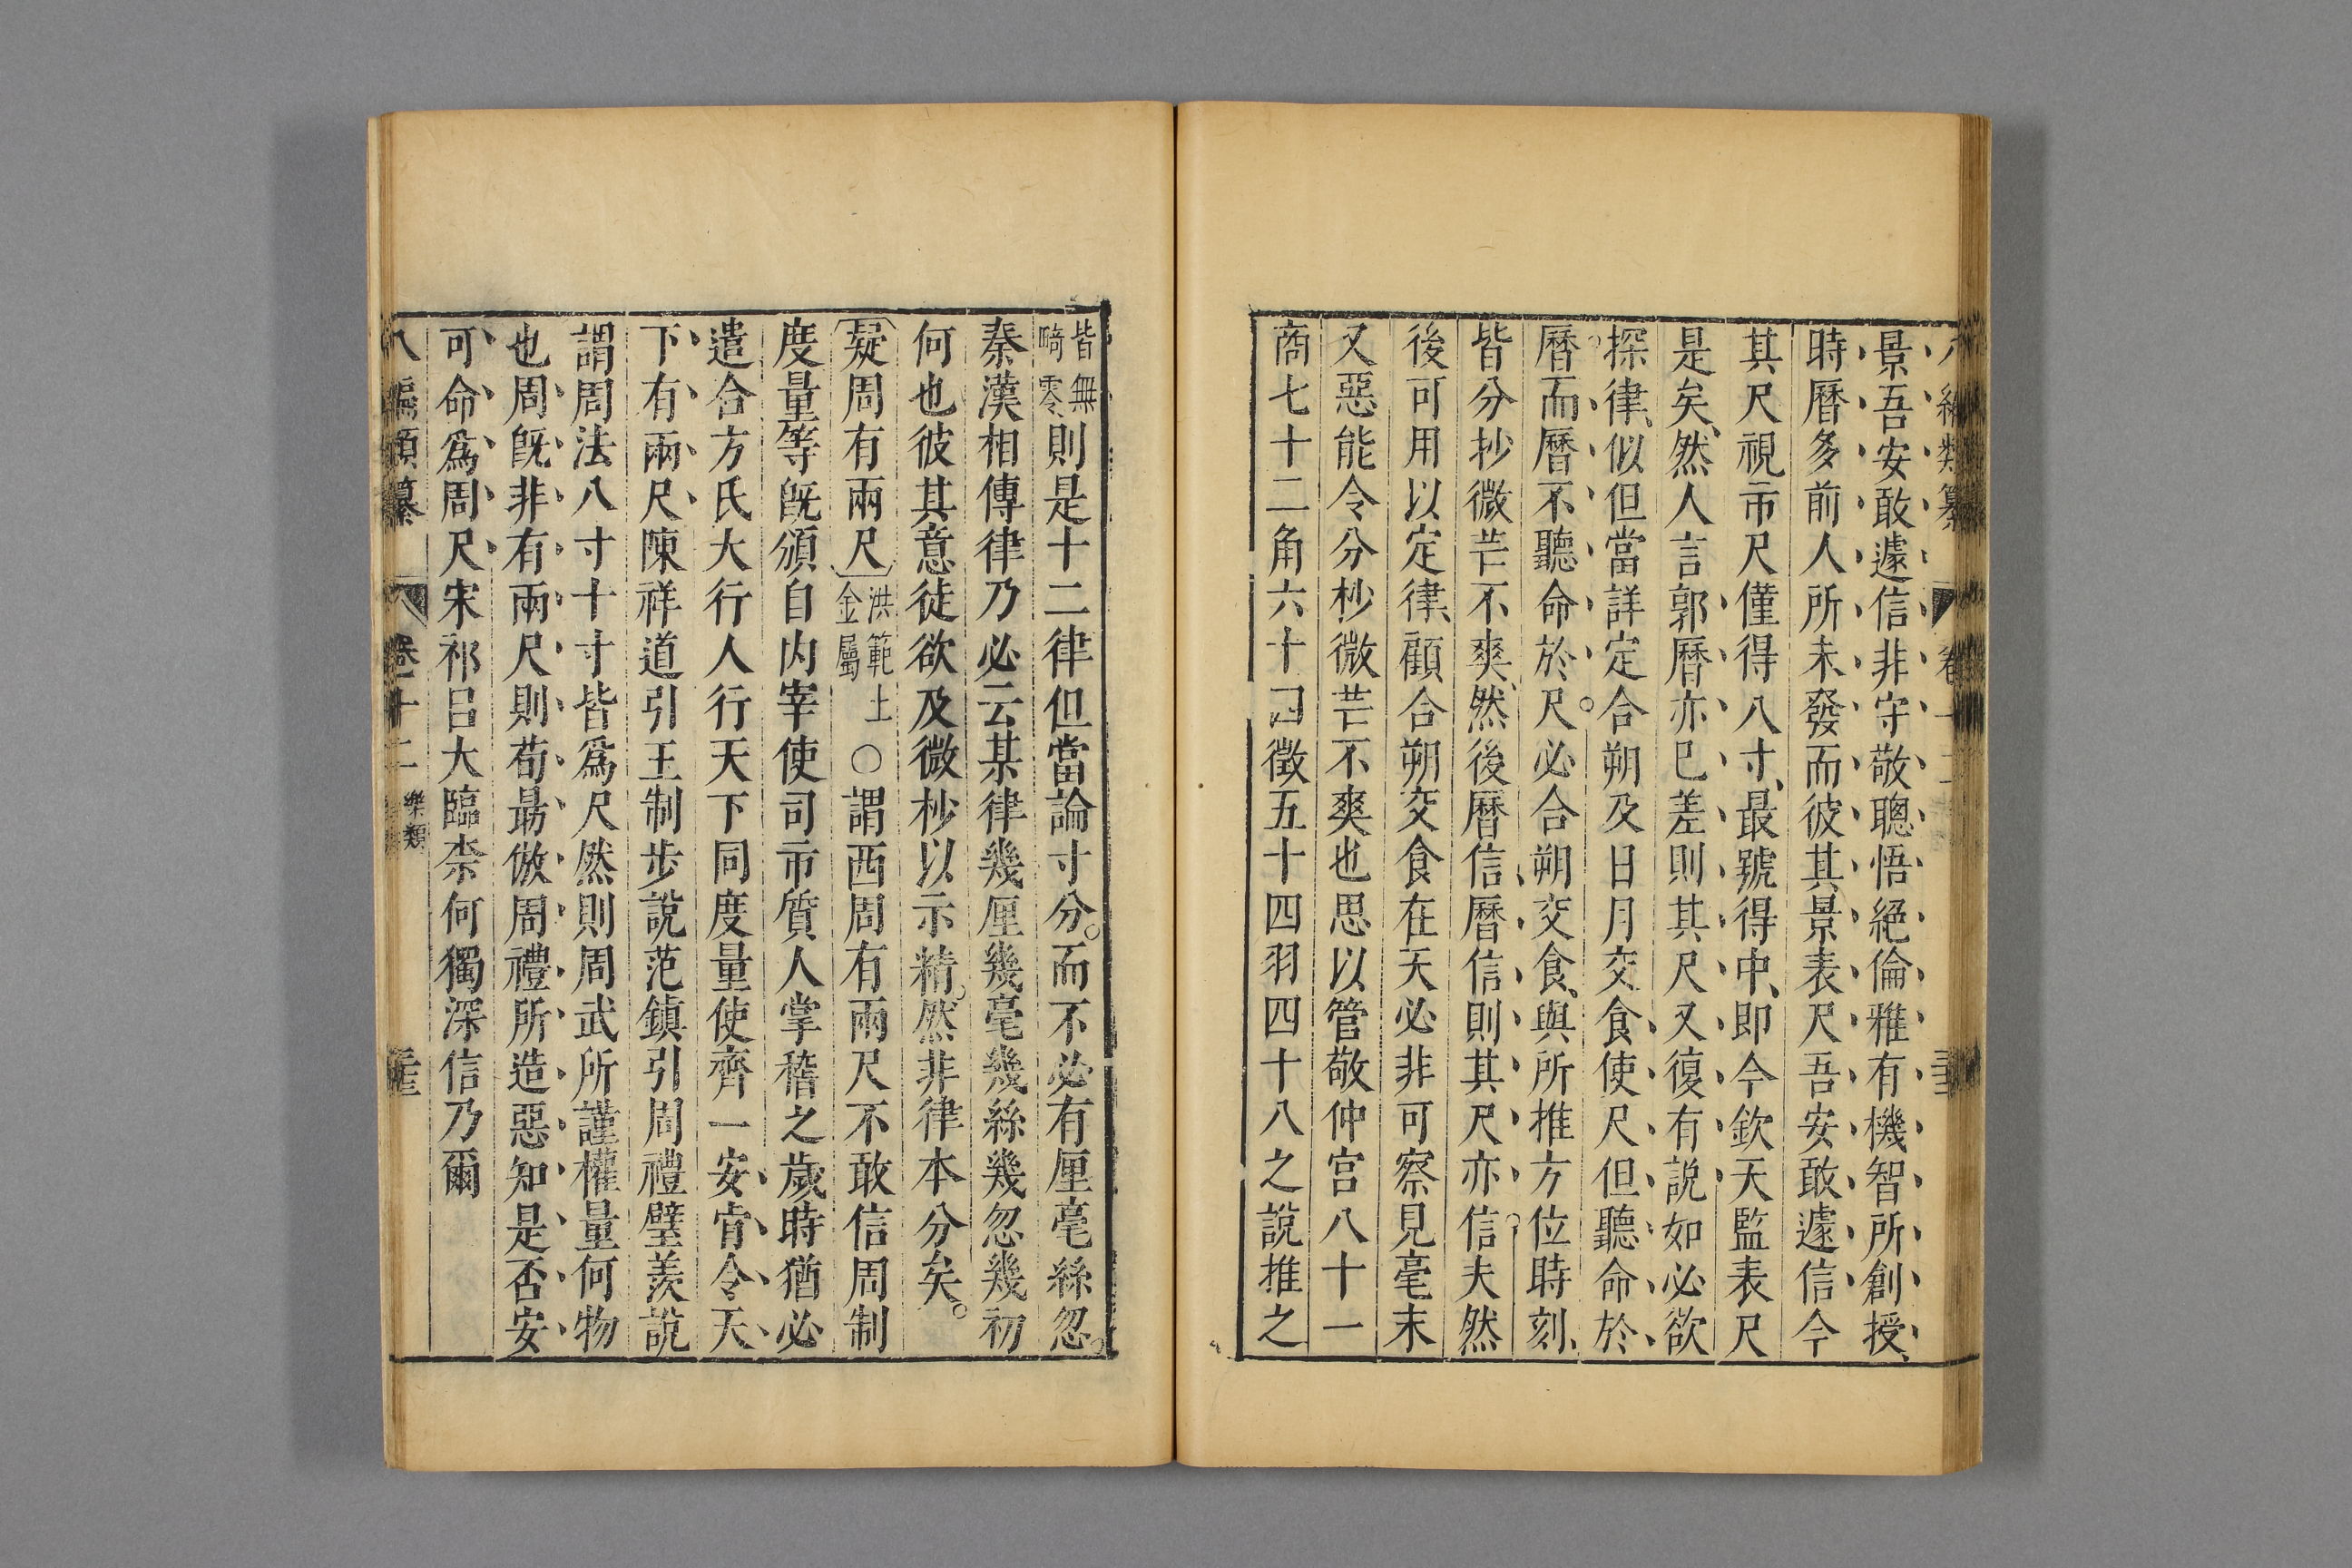 景吾安敢遽信非守敬聰悟絕倫雅有機智所創授
時曆多前人所未發而彼其景表尺吾安敢遽信今
其尺視市尺僅得八寸最號得中即今欽天監表尺
是矣然人言郭曆亦巳差則其尺又復有説如必欲
探律似但當詳定合朔及日月交食使尺但聽命於
曆而曆不聽命於尺必合朔交食與所推方位時刻
皆分抄微芒不爽然後曆信曆信則其尺亦信夫然
後可用以定律顧合朔交食在天必非可察見毫末
又惡能令分杪微芒不爽也思以管敬仲宫八十一
商七十二角六十四徵五十四羽四十八之說推之
皆無
畸零
則是十二律但當論寸分而不必有厘毫絲忽
秦漢相傳律乃必云某律幾厘幾毫幾絲幾忽幾初
何也彼其意徒欲及微杪以示精然非律本分矣
疑周有兩尺
洪範
金屬
土○謂西周有兩尺不敢信周制
度量等旣頒自内宰使司市質人掌稽之歲時猶必
遣合方氏大行人行天下同度量使齊一安肯令天
下有兩尺陳祥道引王制步說范鎮引周禮璧羨說
謂周法八寸十寸皆爲尺然則周武所謹權量何物
也周旣非有兩尺則荀勗倣周禮所造惡知是否安
可命爲周尺宋祁呂大臨柰何獨深信乃爾
八編類纂
卷十二
樂類